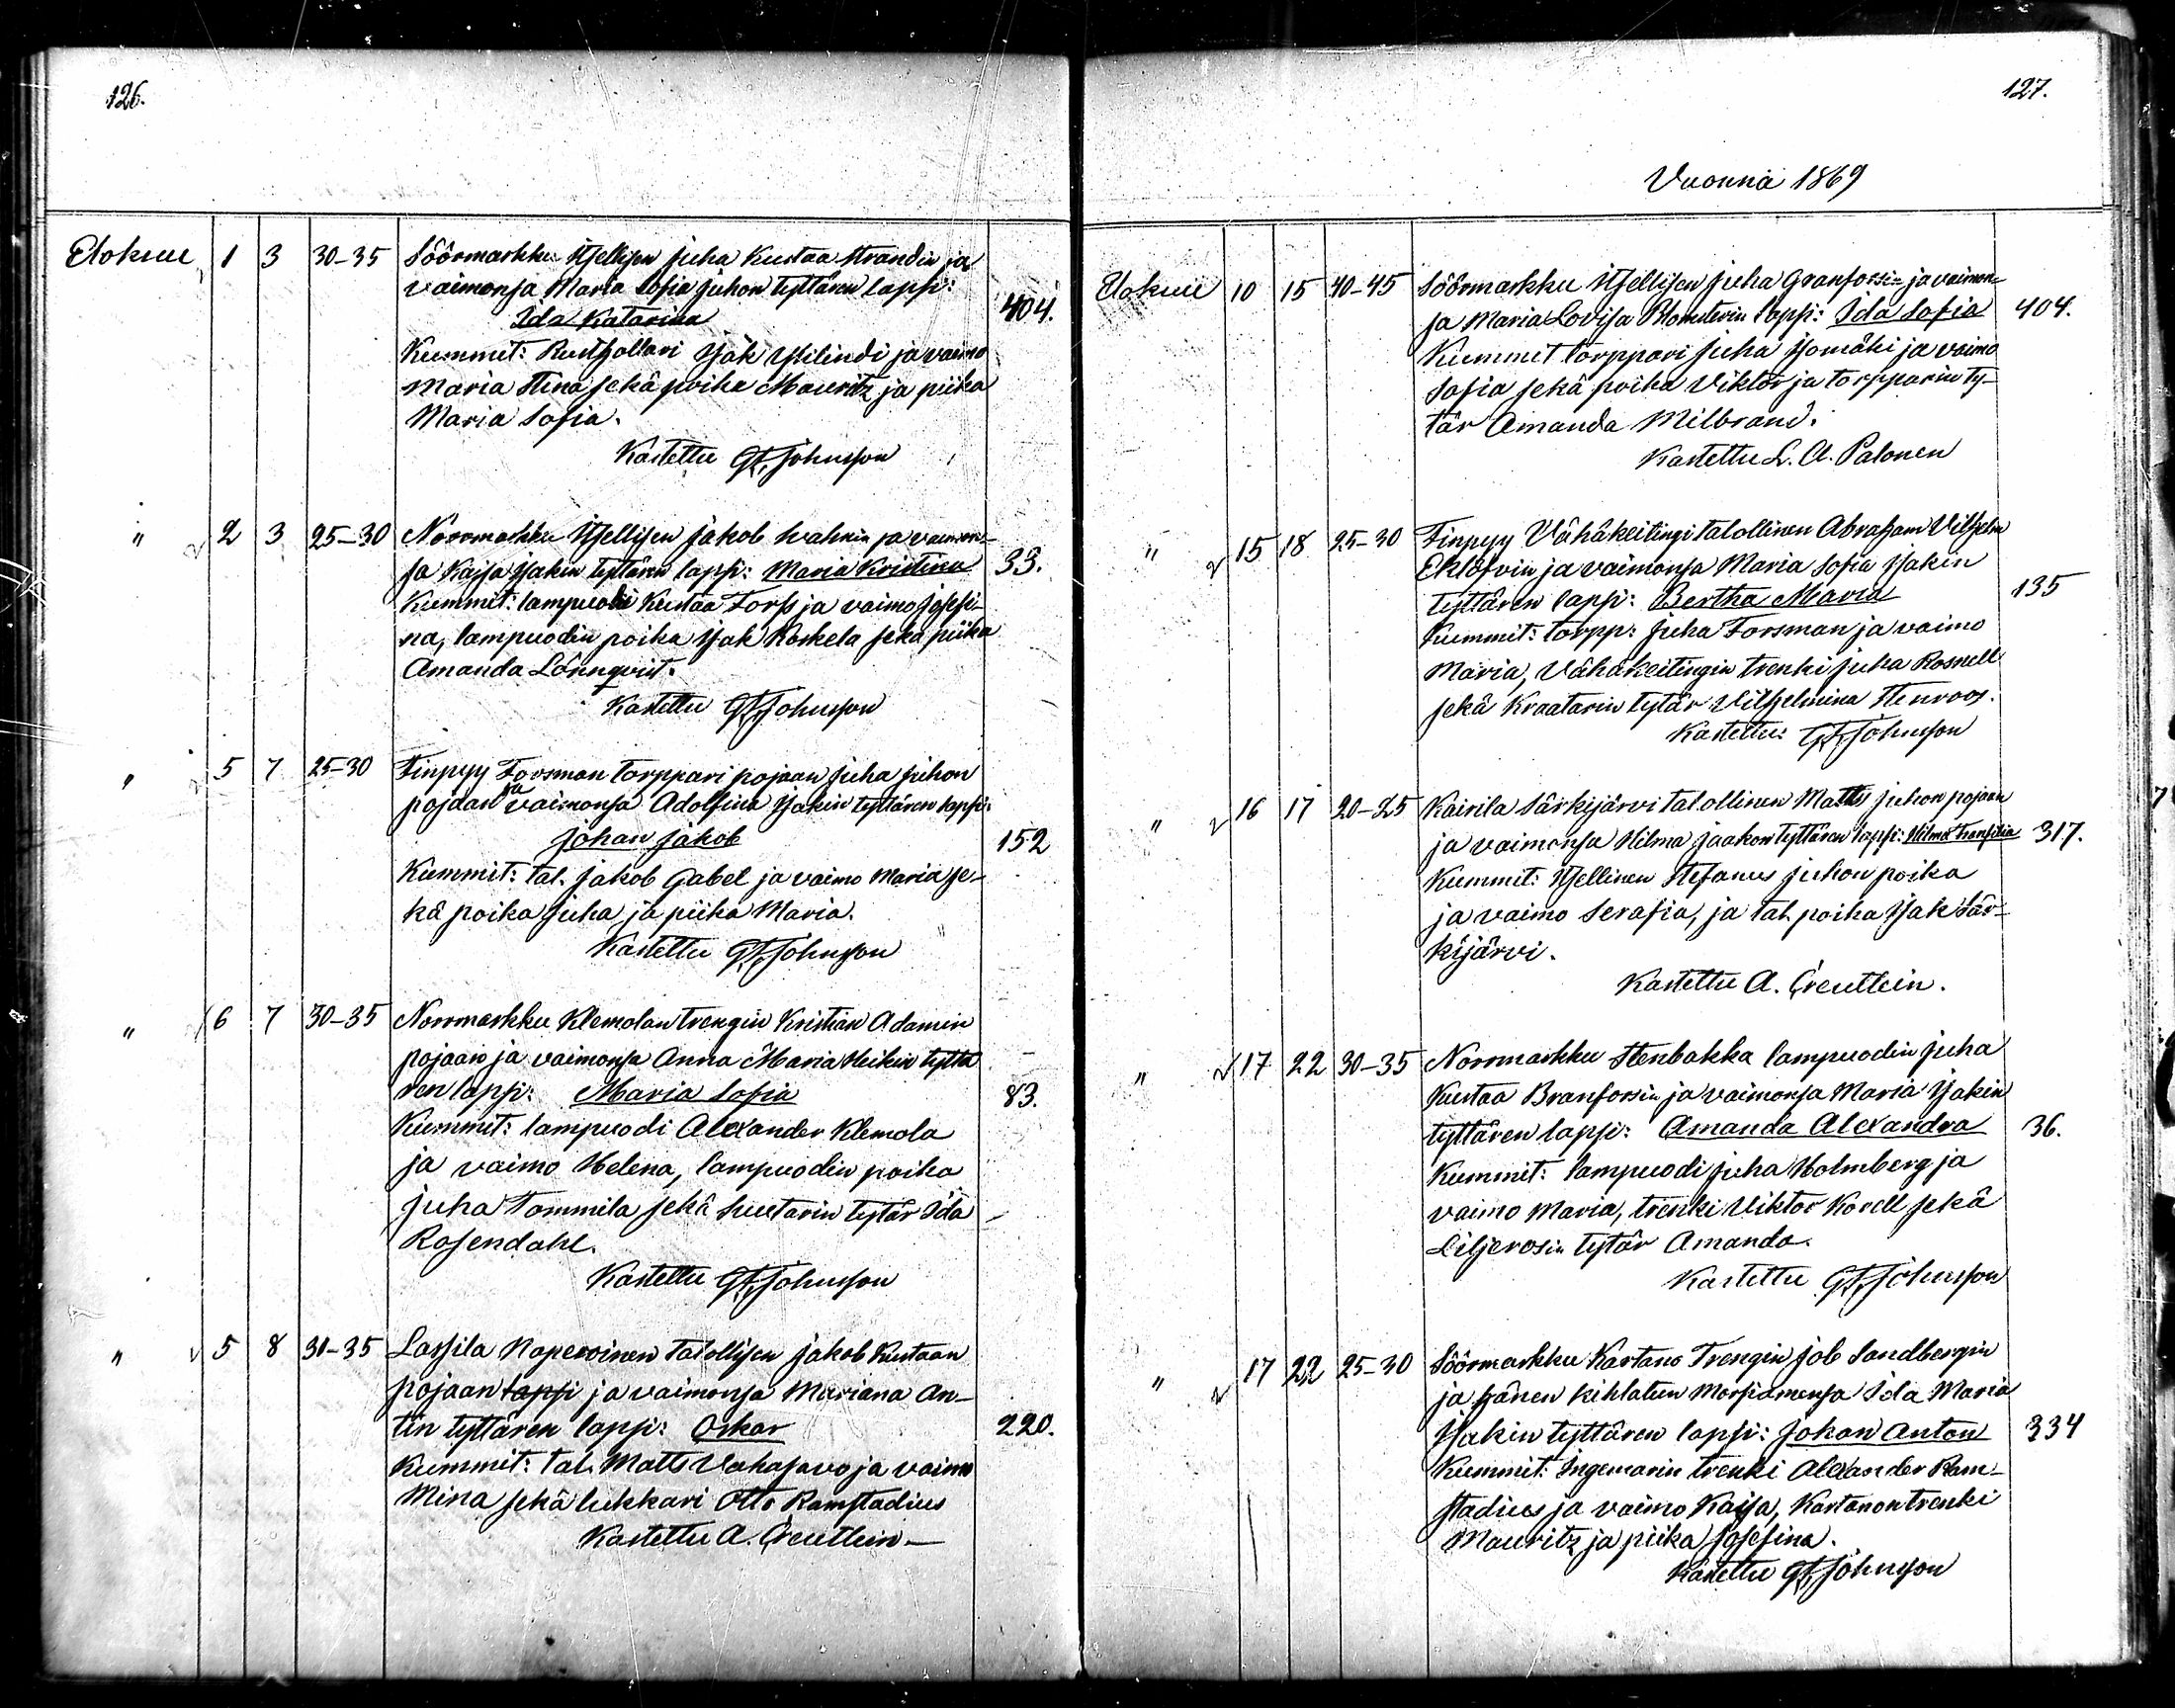 126.
Elokuu 1 3 30-35 Söörmarkku Itsellisen Juha Kustaa Strandin ja
vaimonsa Maria Sofia Juhon tyttären lapsi:
Ida Katarina 404.
Kummit: Rusthollari Isak Yfilindi ja vaimo
Maria Stina sekä poika Mauritz ja piika
Maria Sofia.
Kastettu G. F. Johnsson
" 2 3 25-30 Norrmarkku Itsellisen Jakob Svahnin ja vaimon-
sa Kajsa Isakin tyttären lapsi: Maria Kristina 33.
Kummit: lampuodi Kustaa Forss ja vaimo Josefi-
na, lampuodin poika Isak Koskela sekä piika
Amanda Lönnqvist.
Kastettu G. F. Johnsson
" 5 7 25-30 Finpyy Forsman torppari pojaan Juha Juhon
pojaan ja vaimonsa Adolfina Isakin tyttären lapsi:
Johan Jakob 152
Kummit: tal. Jakob Gabel ja vaimo Maria se-
kä poika Juha ja piika Maria.
Kastettu G. F. Johnsson
" 6 7 30-35 Norrmarkku Klemolan trengin Kristian Adamin
pojaan ja vaimonsa Anna Maria Heikin tyttä
ren lapsi: Maria Sofia 83.
Kummit: lampuodi Alexander Klemola
ja vaimo Helena, lampuodin poika
Juha Tommila sekä suutarin tytär Ida
Rosendahl.
Kastettu G. F. Johnsson
" 5 8 31-35 Lassila Naperoinen talollisen Jakob Kustaan
pojaan lapsi ja vaimonsa Mariana An-
tin tyttären lapsi: Oskar 220.
Kummit: tal. Matts Vahasavo ja vaimo
Mina sekä lukkari Otto Ramstadius
Kastettu A. Creutlein
127.
Vuonna 1869
Elokuu 10 15 40-45 Söörmarkku Itsellisen Juha Granforsin ja vaimon-
sa Maria Lovisa Blomsterin lapsi: Ida Sofia 404.
Kummit torppari Juha Isomäki ja vaimo
Sofia sekä poika Viktor ja torpparin ty-
tär Amanda Milbrand.
Kastettu L. A. Palonen
" 15 18 25-30 Finpyy Vähäkeitingi talollinen Abraham Vilhelm
Eklöfvin ja vaimonsa Maria Sofia Isakin
tyttären lapsi: Bertha Maria 135
Kummit: torpp: Juha Forsman ja vaimo
Maria, Vähäkeitingin trenki Juha Rosnell
sekä Kraatarin tytär Vilhelmina Stenroos.
Kastettu: G. F. Johnsson
" 16 17 20-25 Kairila Särkijärvi talollinen Matts Juhon pojaan
ja vaimonsa Hilma Jaakon tyttären lapsi: Hilma Fransilia 317.
Kummit: Itsellinen Stefanus Juhon poika
ja vaimo Serafia, ja tal. poika Isak Sär-
kijärvi.
Kastettu A. Creutlein.
" 17 22 30-35 Norrmarkku Stenbakka lampuodin Juha
Kustaa Branforsin ja vaimonsa Maria Isakin
tyttären lapsi: Amanda Alexandra 36.
Kummit: lampuodi Juha Holmberg ja
vaimo Maria, trenki Viktor Korell sekä
Liljerosin tytär Amanda.
Kastettu G. F. Johnsson
" 17 22 25-30 Söörmarkku Kartano Trengin Job Sandbergin
ja hänen kihlatun Morsiamensa Ida Maria
Isakin tyttären lapsi: Johan Anton 334
Kummit: Ingemarin trenki Alexander Ram-
stadius ja vaimo Kaisa, Kartanon trenki
Mauritz ja piika Josefina.
Kastettu G. F. Johnsson